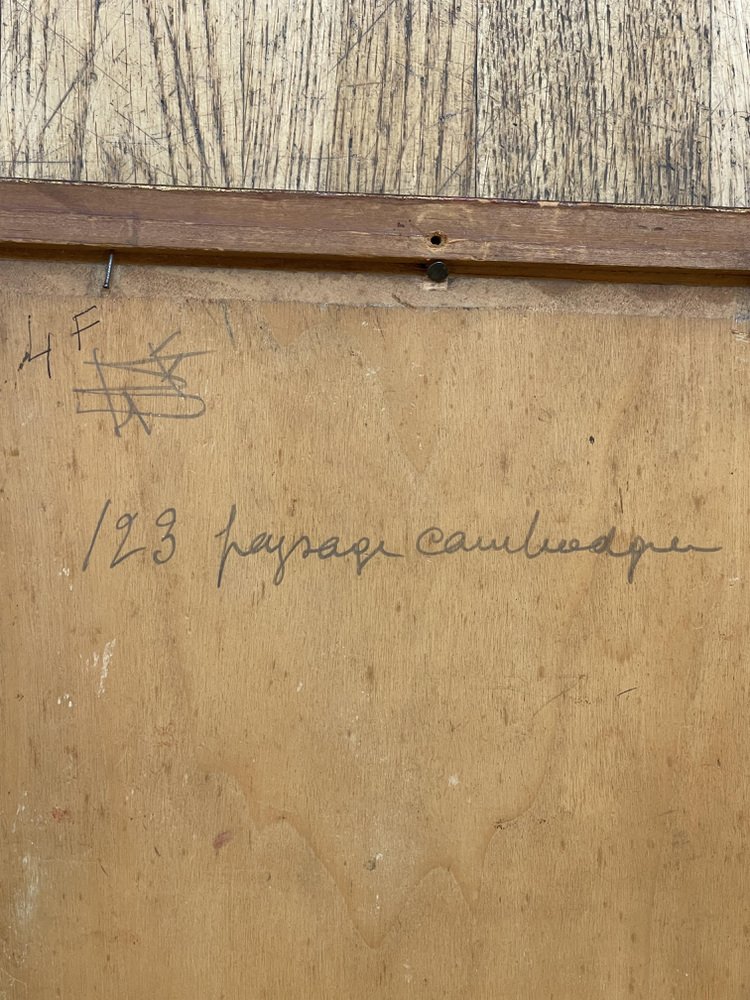 4 F
123 paysage cambodgien